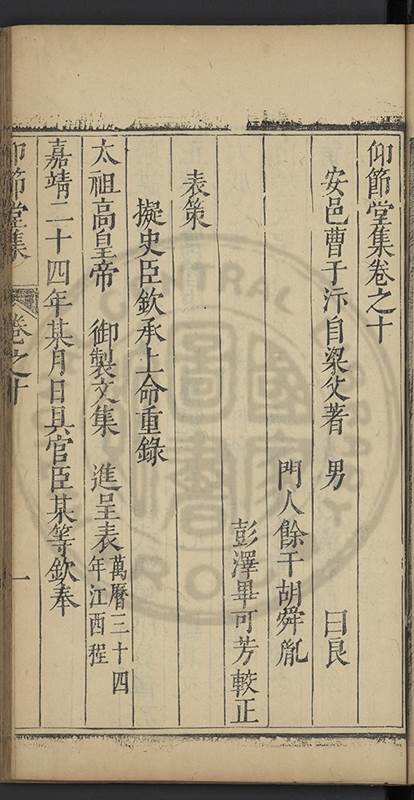 仰節堂集卷之十
安邑曹于汴自梁父著　男　曰良
門人餘干胡舜胤
彭澤畢可芳較正
表策
擬史臣欽承上命重錄
太祖高皇帝　御製文集　進呈表萬曆三十四年江西程
嘉靖二十四年某月日具官臣某等欽奉
仰節堂集　卷之十　一